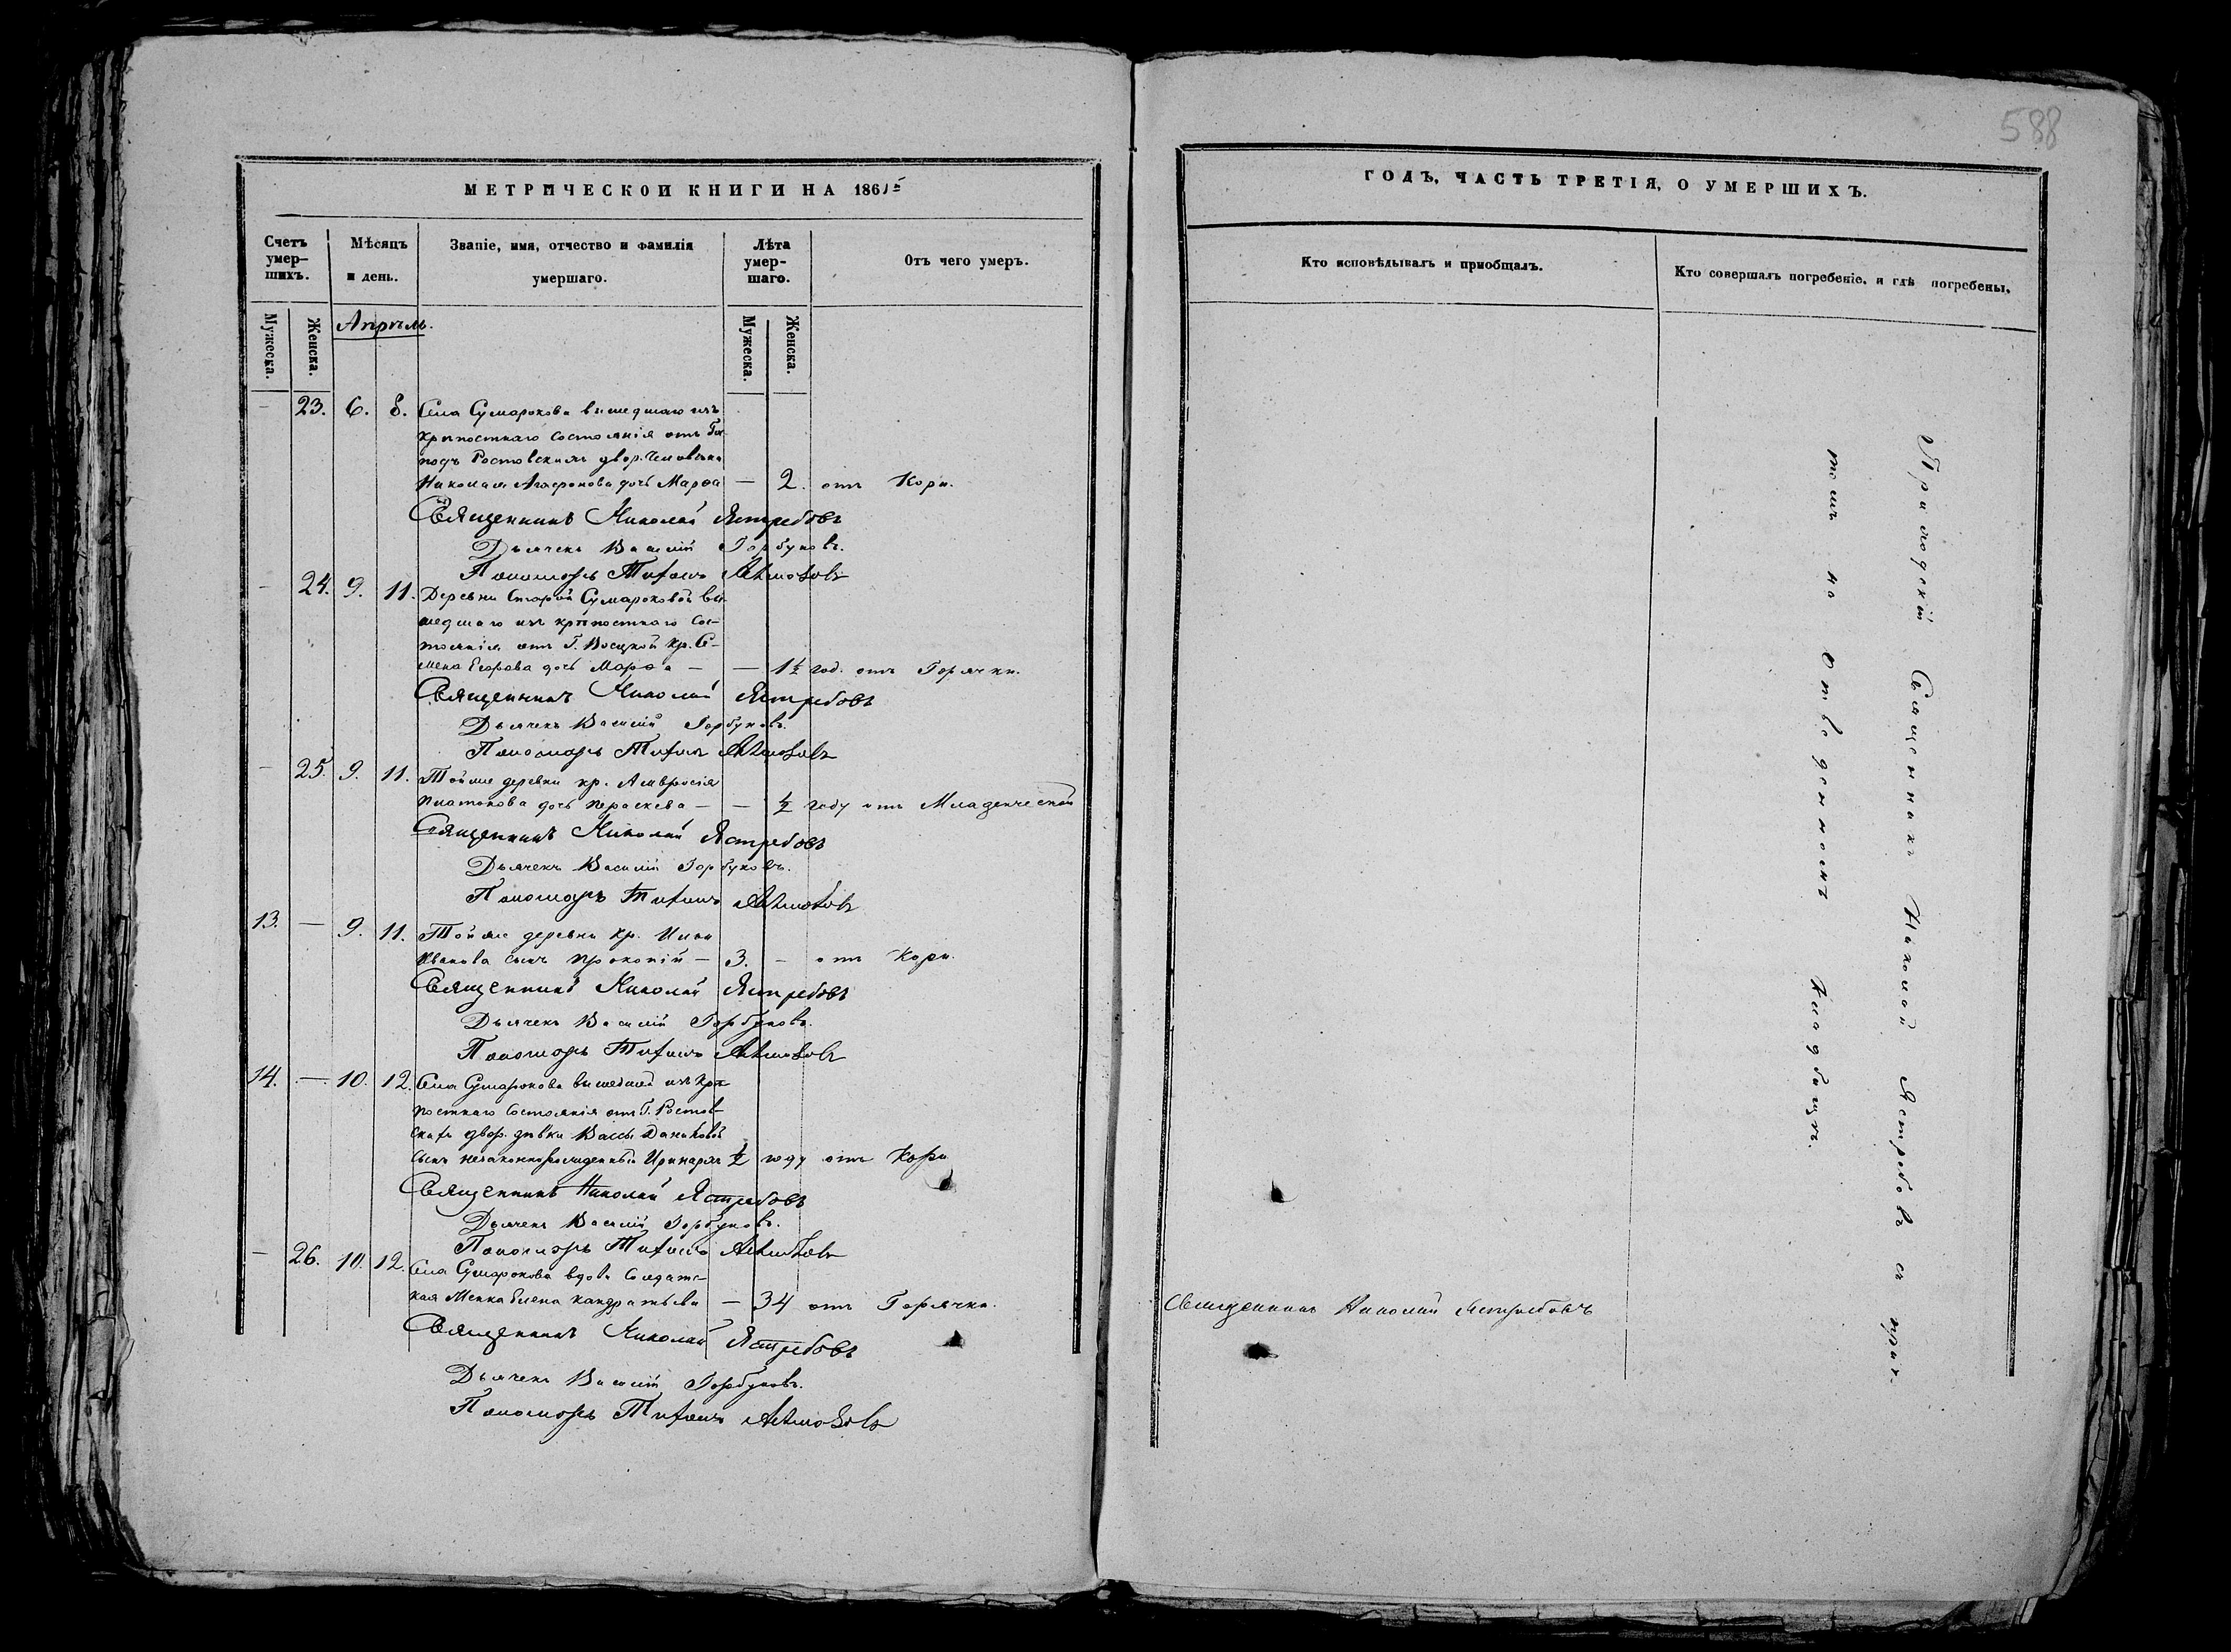 588
МЕТРИЧЕСКОЙ КНИГИ НА 1861й
Счетъ умер-
шихъ.
Мѣсяцъ
и день.
Званіе, имя, отчество и фамилія
умершаго.
Лѣта
умер-
шаго.
Отъ чего умеръ.
Мужеска.
Женска.
Апрѣль.
Мужеска.
Женска.
— 23. 6. 8. Села Сумарокова вышедшаго изъ
крѣпостнаго состоянія отъ Гос-
подъ Ростовскихъ двор. человѣка
Николая Агафонова дочь Марѳа — 2. отъ Кори.
Священникъ Николай Ястребовъ
Дьячекъ Василій Горбуновъ.
Пономарь Тихонъ
— 24. 9. 11. Деревни Старой Сумароковой вы-
шедшаго изъ крѣпостнаго сос-
тоянія отъ Г. кр. Се-
мена Егорова дочь Марѳа — — 1½ год. отъ Горячки.
Священникъ Николай Ястребовъ
Дьячекъ Василій Горбуновъ.
Пономарь Тихонъ
— 25. 9. 11. Той же деревни кр. Амвросія
Платонова дочь Параскева — — ½ году отъ Младенческой
Священникъ Николай Ястребовъ
Дьячекъ Василій Горбуновъ.
Пономарь Тихонъ
13. — 9. 11. Той же деревни кр. Ильи
Иванова сынъ Прокопій — 3. — отъ Кори.
Священникъ Николай Ястребовъ
Дьячекъ Василій Горбуновъ.
Пономарь Тихонъ
14. — 10. 12. Села Сумарокова вышедшей изъ крѣ-
постнаго состоянія отъ Г. Ростов-
скихъ двор. дѣвки Вассы Даниловой
сынъ незаконнорожденный Иринархъ ½ году отъ Кори
Священникъ Николай Ястребовъ
Дьячекъ Василій Горбуновъ.
Пономарь Тихонъ
— 26. 10. 12. Села Сумарокова вдова солдатс-
кая женка Елена Кандратьева — 34 отъ Горячки.
Священникъ Николай Ястребовъ
Дьячекъ Василій Горбуновъ.
Пономарь Тихонъ
ГОДЪ, ЧАСТЬ ТРЕТІЯ, О УМЕРШИХЪ.
Кто исповѣдывалъ и пріобщалъ.
Кто совершалъ погребеніе, и гдѣ погребены.
Священникъ Николай Ястребовъ
Приходскій Священникъ Николай Ястребовъ съ прич-
томъ на Отведенномъ Кладбищѣ.